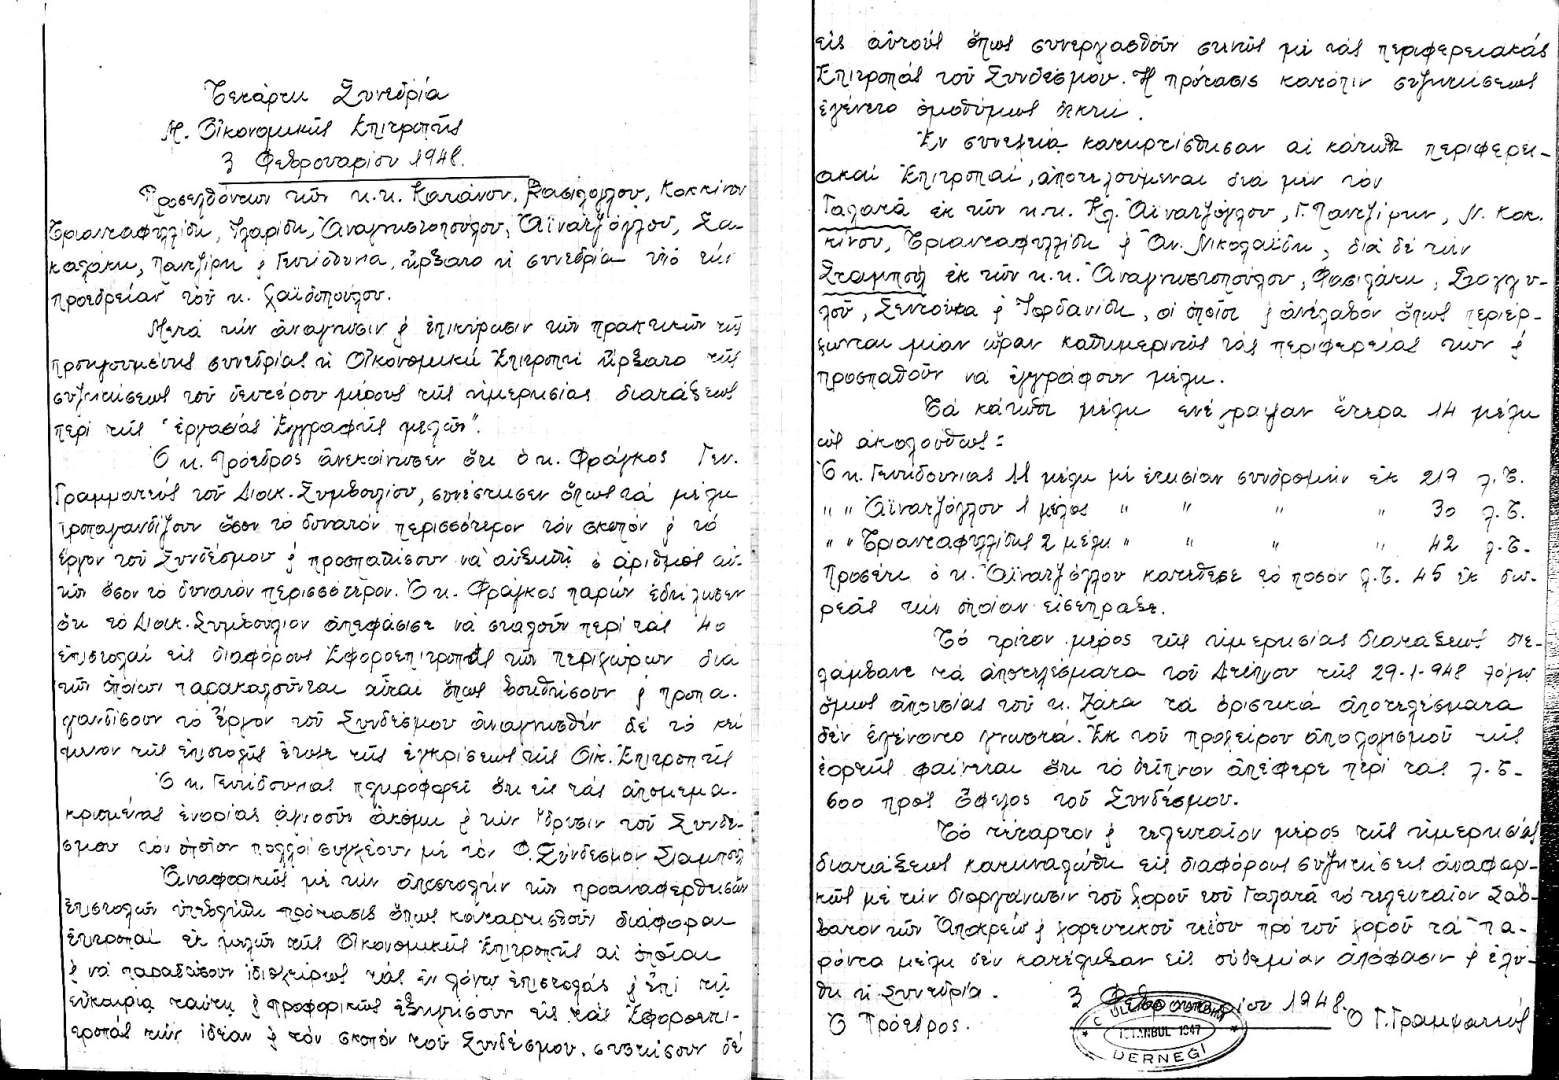 Τετάρτη Συνεδρία
Μ. Οἰκονομικῆς Ἐπιτροπῆς
3 Φεβρουαρίου 1948.
Προσελθόντων τῶν κ.κ. Κατάνου, Βασιλόγλου, Κοκκίνου
Τριανταφυλλίδη, Ἰλαρίδη, Ἀναγνωστοπούλου, Ἀϊνατζόγλου, Σα-
καλάκη, Παντζίρη ϗ Γενηδουνια, ἤρξατο ἡ συνεδρία ὑπό τήν
προεδρείαν τοῦ κ. Χαϊδοπούλου.
Μετά τήν ἀνάγνωσιν ϗ ἐπικύρωσιν τῶν πρακτικῶν τῆς
προηγουμένης συνεδρίας ἡ Οἰκονομική Ἐπιτροπή ἤρξατο τῆς
συζητήσεως τοῦ δευτέρου μέρους τῆς ἡμερησίας διατάξεως
περί τῆς "ἐργασίας Ἐγγραφῆς μελῶν".
Ὁ κ. Πρόεδρος ἀνεκοίνωσεν ὅτι ὁ κ. Φράγκος Γεν.
Γραμματεύς τοῦ Διοικ. Συμβουλίου, συνέστησεν ὅπως τά μέλη
προπαγανδίζουν ὅσον τό δυνατόν περισσότερον τόν σκοπόν ϗ τό
ἔργον τοῦ Συνδέσμου ϗ προσπαθήσουν νά αὐξηθῇ ὁ ἀριθμός αὐ-
τῶν ὅσον τό δυνατόν περισσότερον. Ὁ κ. Φράγκος παρών ἐδήλωσεν
ὅτι τό Διοικ. Συμβούλιον ἀπεφάσισε νά σταλοῦν περί τάς 40
ἐπιστολαί εἰς διαφόρους Ἐφοροεπιτροπάς τῶν περιχώρων διά
τῶν ὁποίων παρακαλοῦνται αὗται ὅπως βοηθήσουν ϗ προπα-
γανδίσουν τό Ἔργον τοῦ Συνδέσμου ἀναγνωσθέν δέ τό κεί
μενον τῆς ἐπιστολῆς ἔτυχε τῆς ἐγκρίσεως τῆς Οἰκ. Ἐπιτροπῆς
Ὁ κ. Γενηδουνιας πληροφορεῖ ὅτι εἰς τάς ἀπομεμα-
κρισμένας ἐνορίας ἀγνοοῦν ἀκόμη ϗ τήν ἵδρυσιν τοῦ Συνδέ-
σμου τόν ὁποῖον πολλοί συγχέουν μέ τόν Φ. Σύνδεσμον Σταμπούλ
Ἀναφορικῶς μέ τήν ἀποστολήν τῶν προαναφερθεισῶν
ἐπιστολῶν ὑπεβλήθη πρότασις ὅπως καταρτισθοῦν διάφοραι
ἐπιτροπαί ἐκ μελῶν τῆς Οἰκονομικῆς Ἐπιτροπῆς αἱ ὁποῖαι
ϗ νά παραδώσουν ἰδιοχείρως τάς ἐν λόγῳ ἐπιστολάς ϗ ἐπί τῇ
εὐκαιρίᾳ ταύτῃ ϗ προφορικῶς ἐξηγήσουν εἰς τάς Ἐφοροεπι-
τροπάς τήν ἰδέαν ϗ τόν σκοπόν τοῦ Συνδέσμου. συστήσουν δέ
εἰς αὐτούς ὅπως συνεργασθοῦν στενῶς μέ τάς περιφερειακάς
Ἐπιτροπάς τοῦ Συνδέσμου. Ἡ πρότασις κατόπιν συζητήσεως
ἐγένετο ὁμοθύμως δεκτή.
Ἐν συνεχείᾳ κατηρτίσθησαν αἱ κάτωθι περιφερει-
ακαί Ἐπιτροπαί, ἀποτελούμεναι διά μέν τόν
Γαλατᾶ ἐκ τῶν κ.κ. Κλ. Ἀϊνατζόγλου, Γ. Παντζίρη, Ν. Κοκ-
κίνου, Τριανταφυλλίδη ϗ Ἀν. Νικολαΐδη, διά δέ τήν
Σταμπούλ ἐκ τῶν κ.κ. Ἀναγνωστοπούλου, Φασιλάκη, Στογγυ-
λοῦ, Σεντούκα ϗ Ἰορδανίδη, οἱ ὁποῖοι ϗ ἀνέλαβον ὅπως περιέρ-
χωνται μίαν ὥραν καθημερινῶς τάς περιφερείας των ϗ
προσπαθοῦν νά ἐγγράφουν μέλη.
Τά κάτωθι μέλη ενέγραψαν ἕτερα 14 μέλη
ὡς ἀκολούθως:
Ὁ κ. Γενηδουνιας 11 μέλη μέ ἐτησίαν συνδρομήν ἐκ 219 λ.Τ.
" " Ἀϊνατζόγλου 1 μέλος " " " " 30 λ.Τ.
" " Τριανταφυλλίδης 2 μέλη " " " " 42 λ.Τ.
Προσέτι ὁ κ. Ἀϊνατζόγλου κατέθεσε τό ποσόν λ.Τ. 45 ἐκ δω-
ρεᾶς τήν ὁποίαν εἰσέπραξε.
Τό τρίτον μέρος τῆς ἡμερησίας διατάξεως πε-
ριλάμβανε τά ἀποτελέσματα τοῦ Δείπνου τῆς 29-1-948 λόγῳ
ὅμως ἀπουσίας τοῦ κ. Ζάκα τά ὁριστικά ἀποτελέσματα
δέν ἐγένοντο γνωστά. Ἐκ τοῦ προχείρου ἀπολογισμοῦ τῆς
ἑορτῆς φαίνεται ὅτι τό δεῖπνον ἀπέφερε περί τάς λ.Τ.
600 πρός ὄφελος τοῦ Συνδέσμου.
Τό τέταρτον ϗ τελευταῖον μέρος τῆς ἡμερησίας
διατάξεως κατηναλώθη εἰς διαφόρους συζητήσεις ἀναφορι-
κῶς μέ τήν διοργάνωσιν τοῦ χοροῦ τοῦ Γαλατᾶ τό τελευταῖον Σάβ-
βατον τῶν Ἀποκρεῶ ϗ χορευτικοῦ τεΐου πρό τοῦ χοροῦ τά πα-
ρόντα μέλη δέν κατέληξαν εἰς οὐδεμίαν ἀπόφασιν ϗ ἐλύ-
θη ἡ Συνεδρία.
3 Φεβρουαρίου 1948.
Ὁ Πρόεδρος.
Ὁ Γ. Γραμματεύς
ISTANBUL 1947
DERNEGI